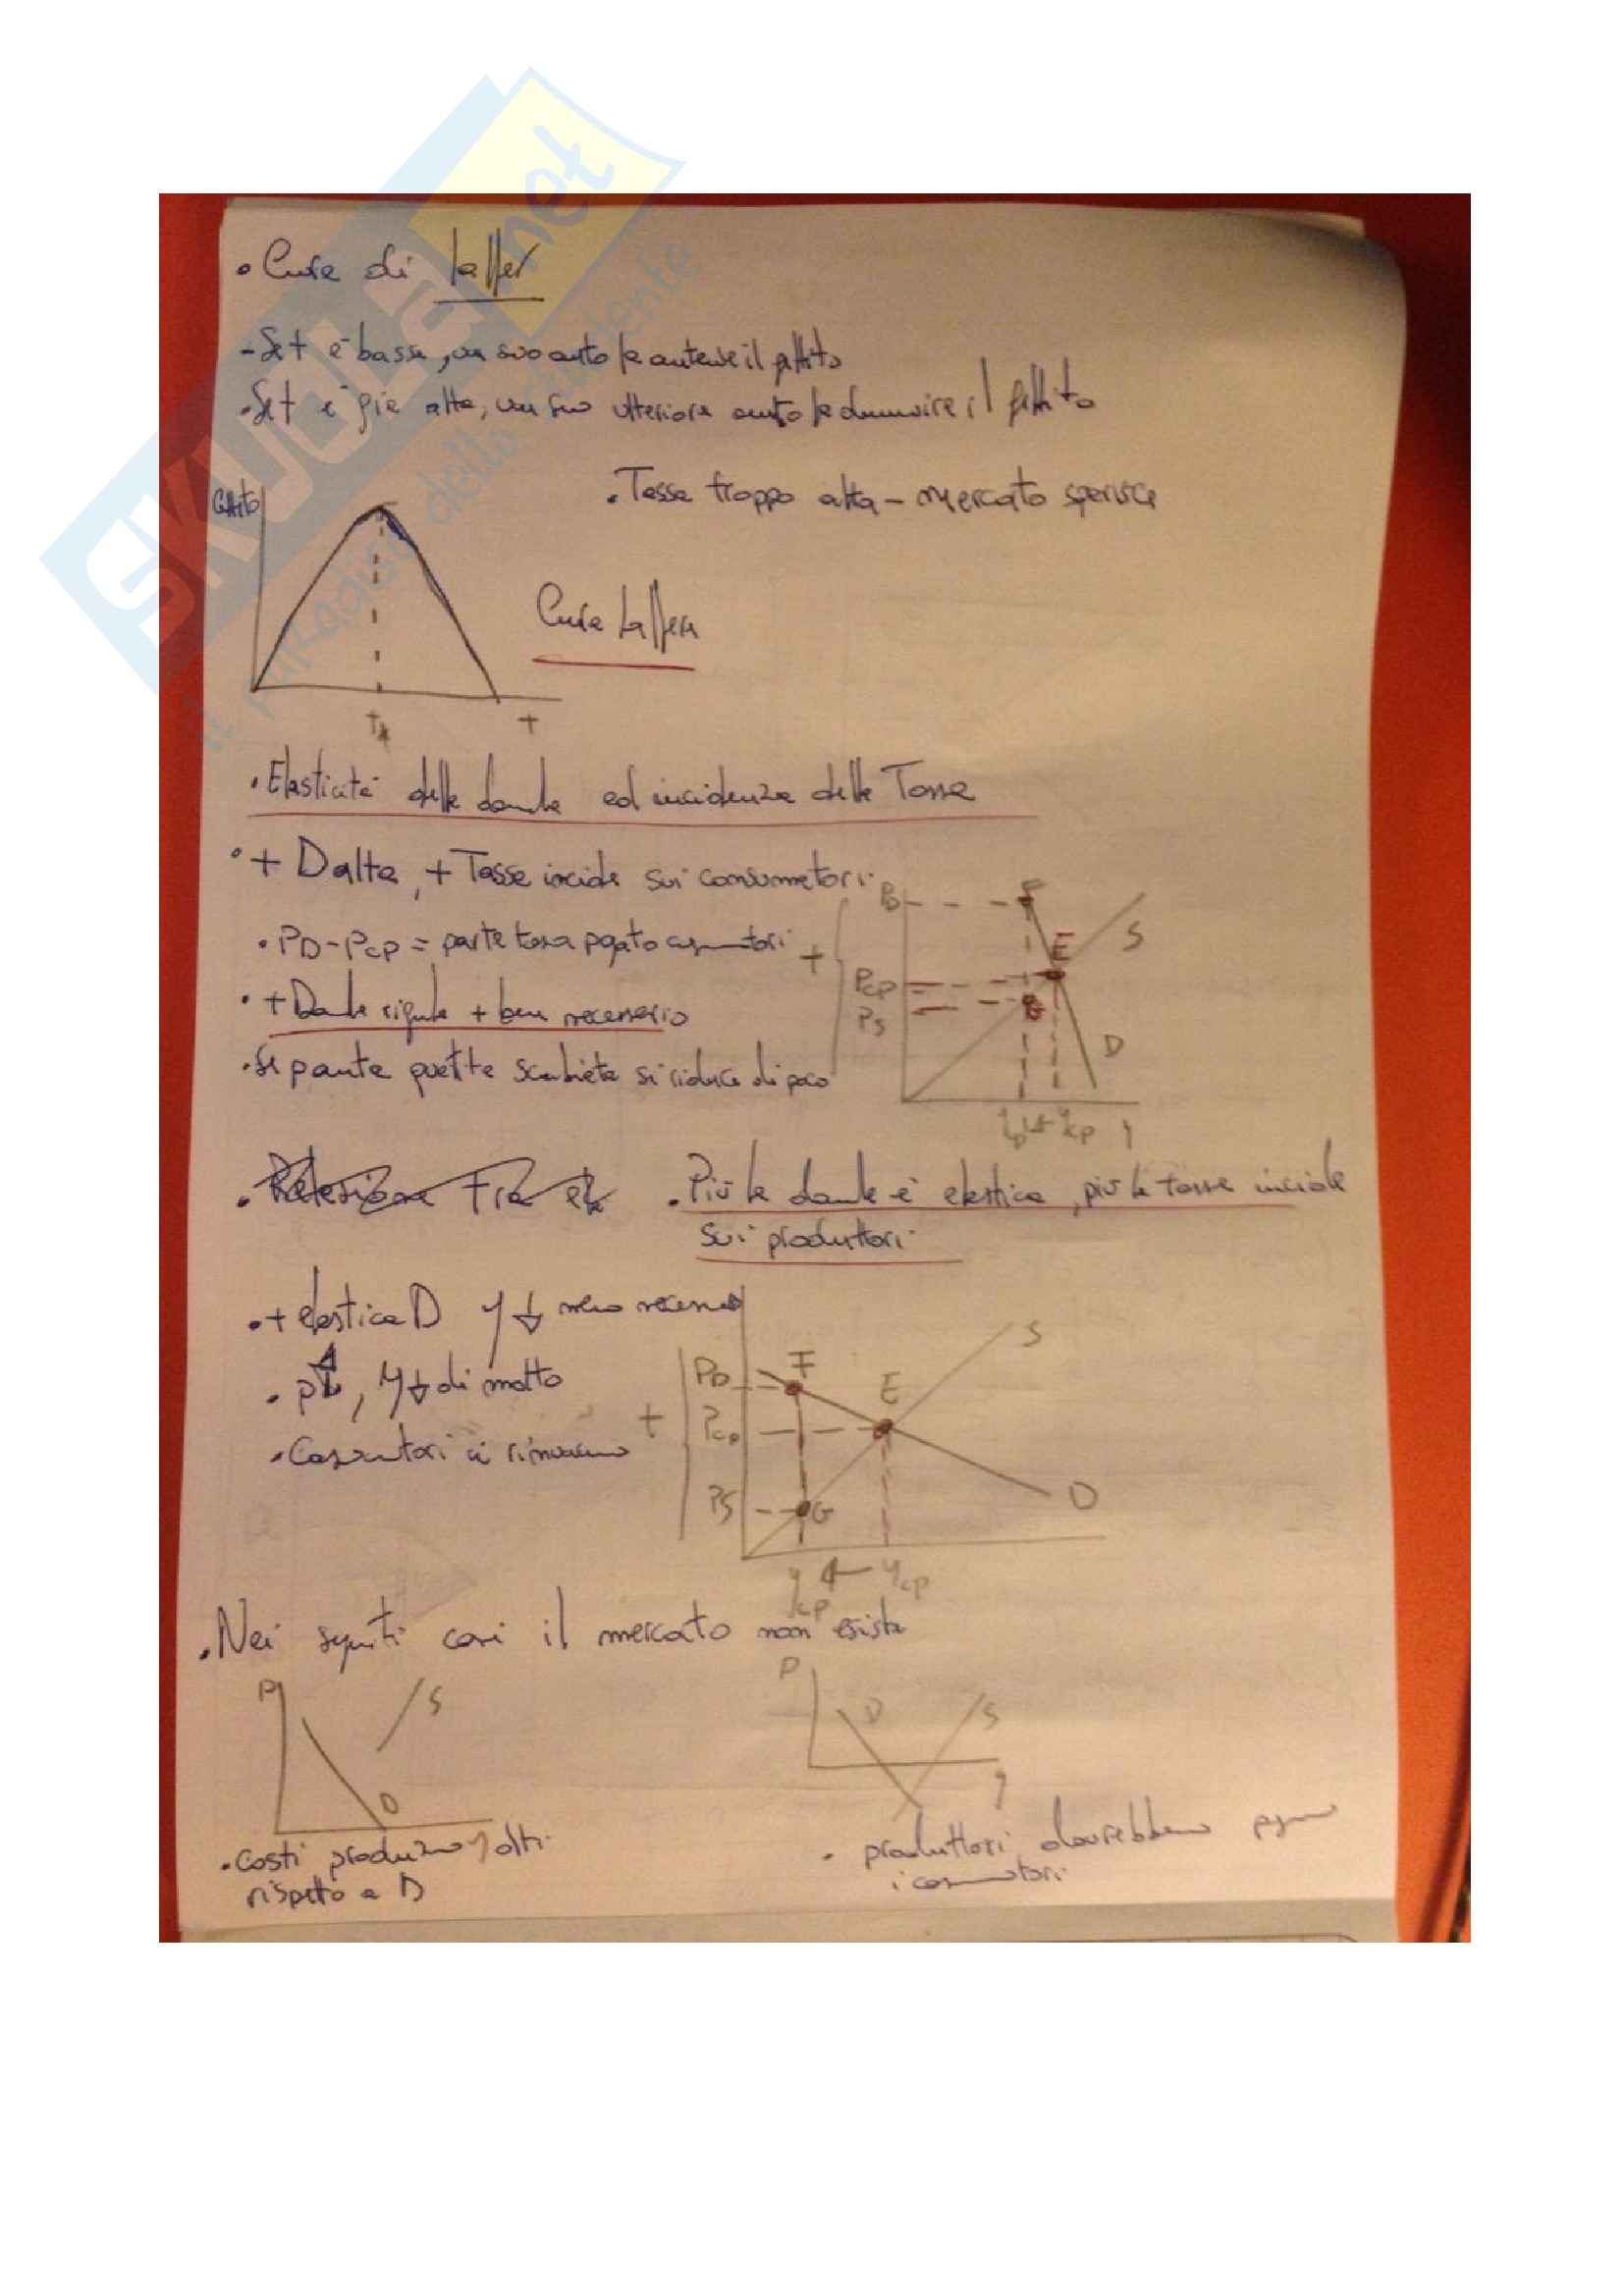 • Curva di Laffer
- Se t è bassa, un suo aumto fa aumentare il gettito
• Se t è già alta, un suo ulteriore aumto fa diminuire il gettito
• Tassa troppo alta - mercato sparisce
Gettito
Curva Laffer
t* t
• Elasticità della domanda ed incidenza della Tassa
• + D alta, + Tassa incide sui consumatori
• PD - PCP = parte tassa pagata consumatori
• + Domanda rigida + bene necessario
• Se p aumta quantità scambiata si riduce di poco
+ PD F
E S
PCP
PS G
D
YCP Y
• Relazione tra
• Più la domanda è elastica, più la tassa incide
sui produttori
• + elastica D Y ↓ meno necess
• p↑, Y↓ di molto
• Consumatori ci rinunciano
+ PD F E S
PCP
PS G D
Y ← YCP
CP
• Nei seguenti casi il mercato non esiste
P S
D
P D S
Y
• Costi produzione alti
rispetto a D
• produttori dovrebbero pagare
i consumatori
SKUOLA.net
il paradiso dello studente